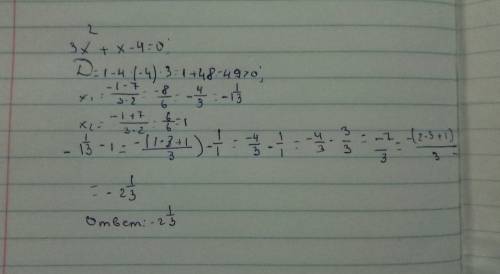 3x² + x - 4 = 0;
D = 1 - 4 · (-4) · 3 = 1 + 48 = 49 > 0;
x₁ = (-1-7)/(3·2) = -8/6 = -4/3 = -1 1/3
x₂ = (-1+7)/(3·2) = 6/6 = 1
-1 1/3 - 1 = -(1·3+1)/3) - 1/1 = -4/3 - 1/1 = -4/3 - 3/3 = -7/3 = -(2·3+1)/3 =
= -2 1/3
Ответ: -2 1/3